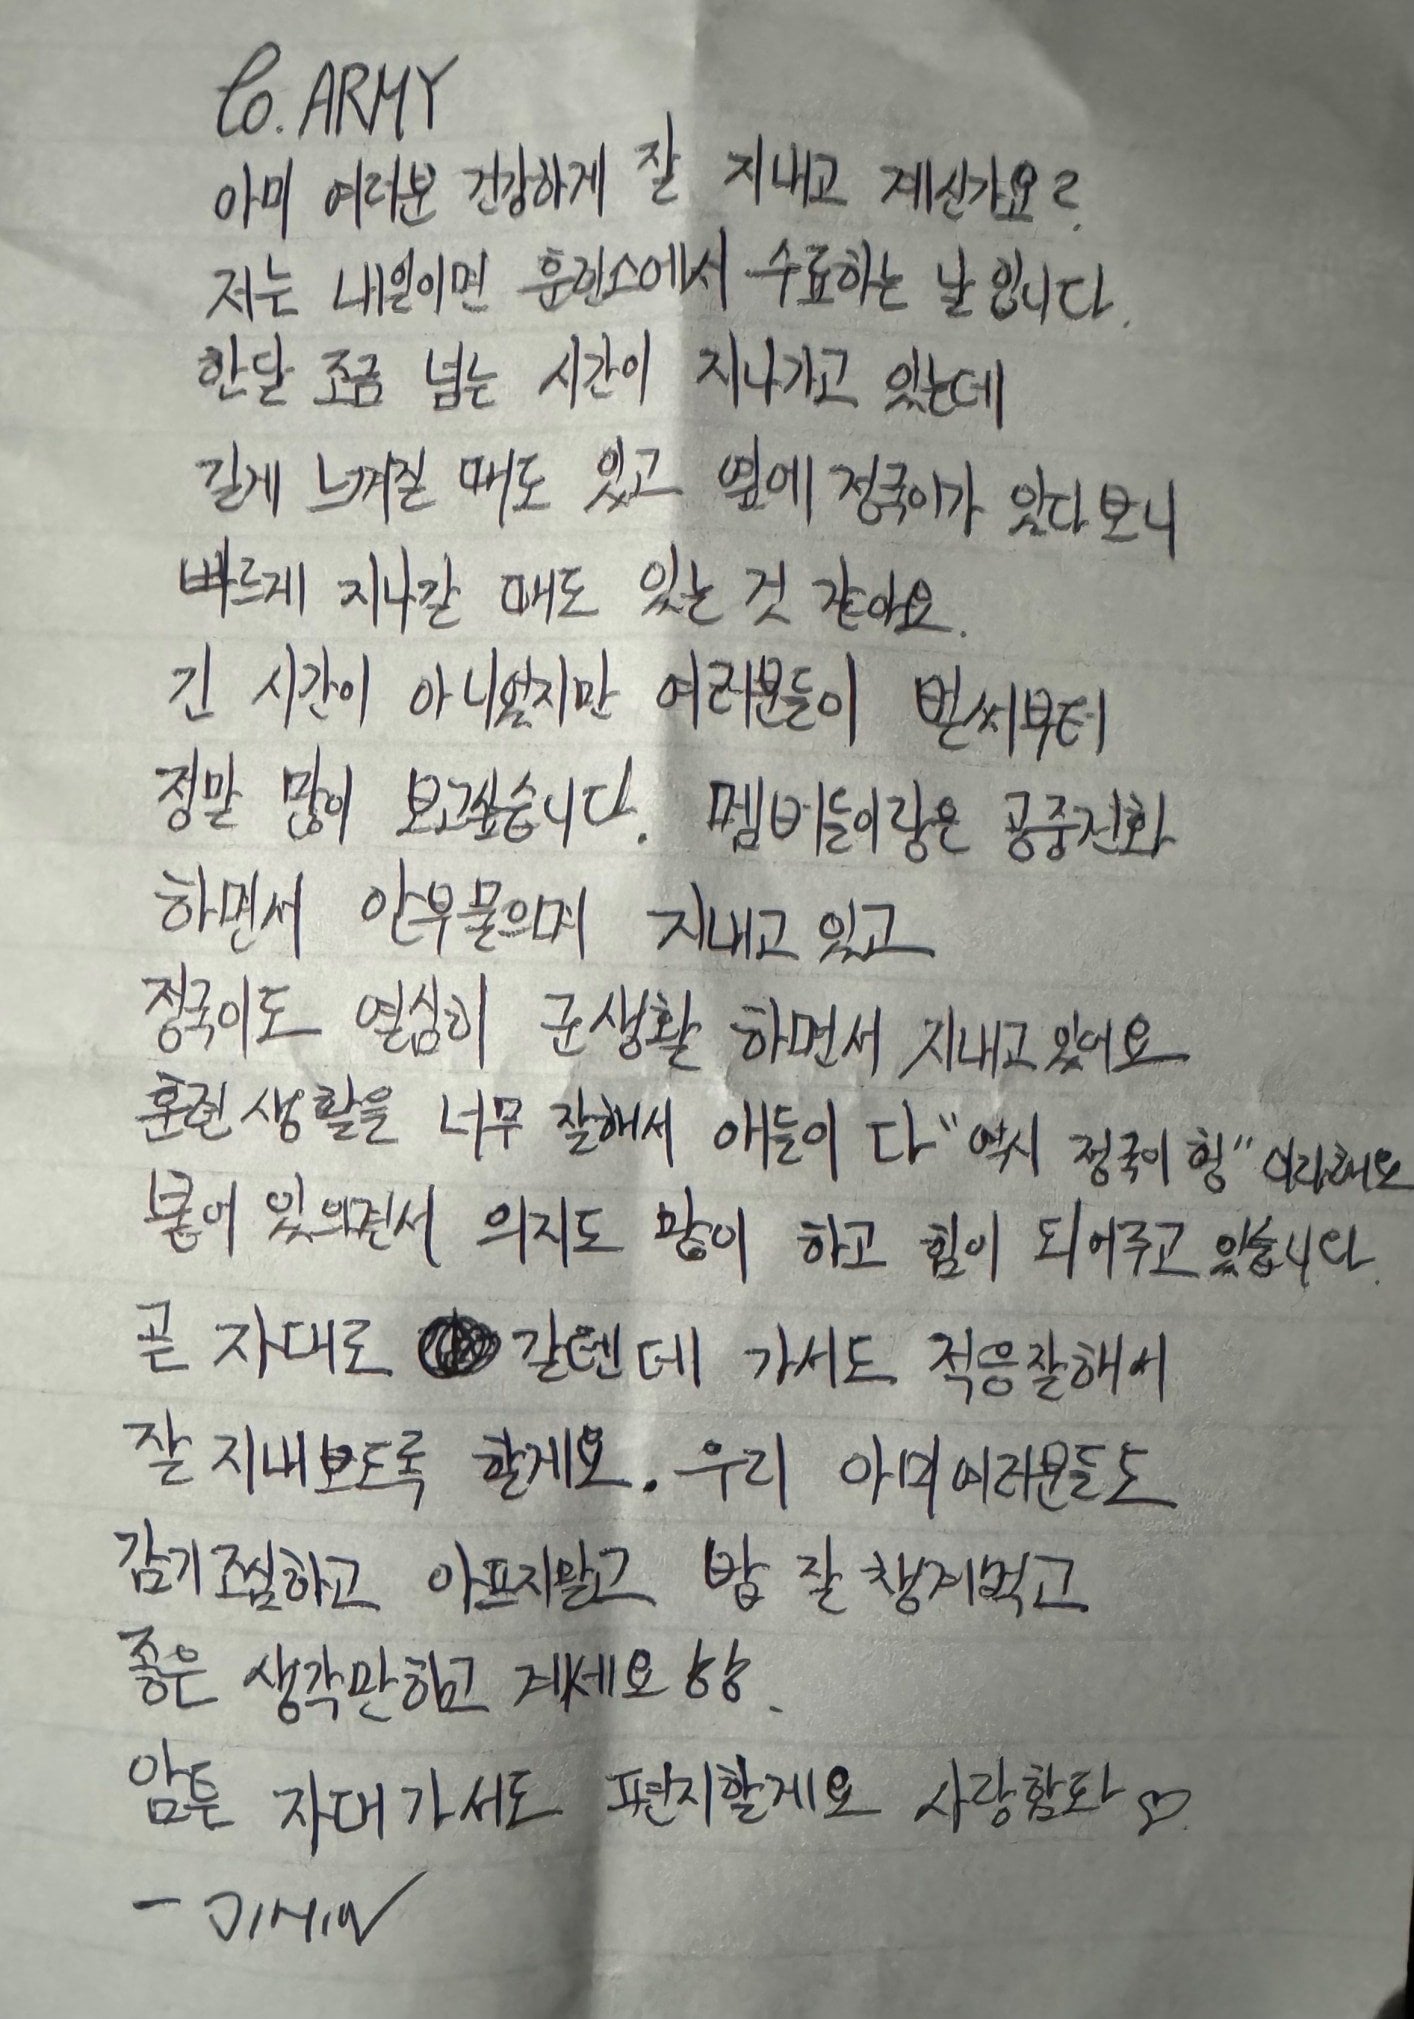 To. ARMY
아미 여러분 건강하게 잘 지내고 계신가요?
저는 내일이면 훈련소에서 수료하는 날입니다.
한달 조금 넘는 시간이 지나가고 있는데
길게 느껴질 때도 있고 옆에 정국이가 있다보니
빠르게 지나갈 때도 있는 것 같아요.
긴 시간이 아니였지만 여러분들이 벌써부터
정말 많이 보고싶습니다. 멤버들이랑은 공중전화
하면서 안부 물으며 지내고 있고
정국이도 열심히 군생활 하면서 지내고 있어요
훈련 생활을 너무 잘해서 애들이 다 "역시 정국이 형" 이라해요
붙어 있으면서 의지도 많이 하고 힘이 되어주고 있습니다.
곧 자대로 갈텐데 가서도 적응 잘해서
잘 지내보도록 할게요. 우리 아미여러분들도
감기조심하고 아프지말고 밥 잘 챙겨먹고
좋은 생각만하고 계세요
암튼 자대가서도 편지할게요 사랑함돠 ♡.
- JIMIN